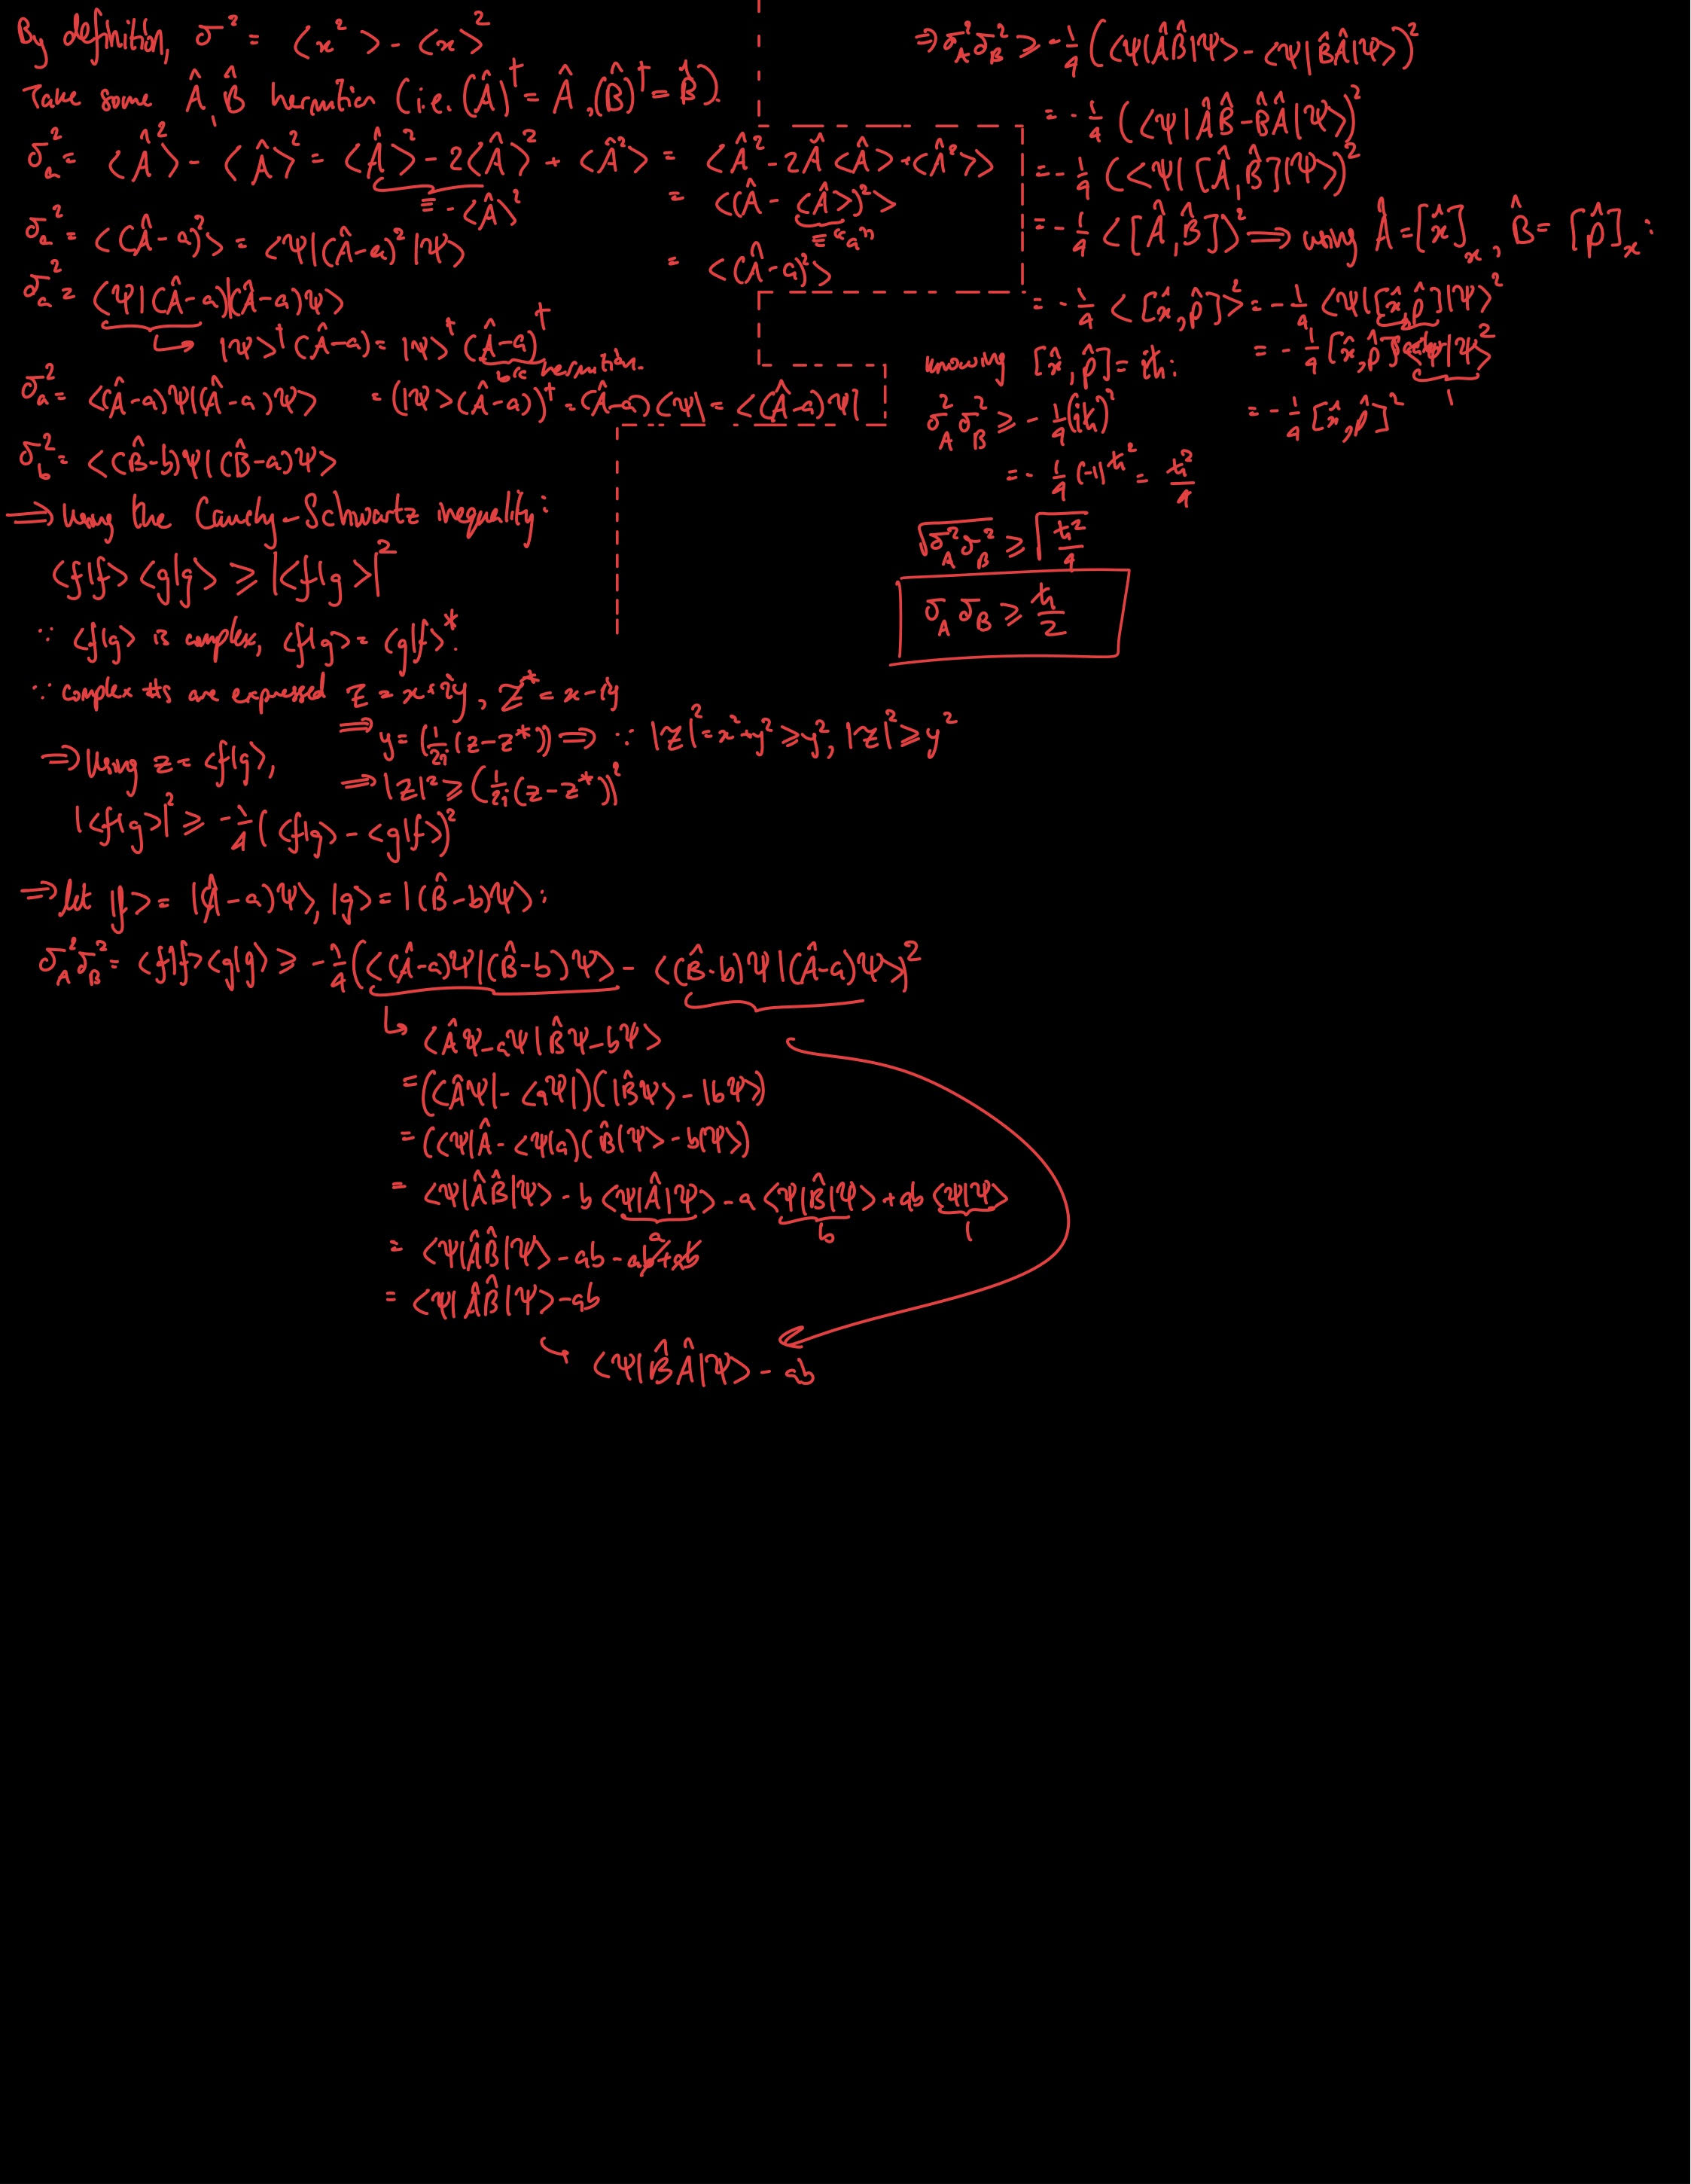 By definition, σ² = <x²> - <x>²
Take some Â, B̂ hermitian (i.e. (Â)† = Â, (B̂)† = B̂).
σₐ² = <Â²> - <Â>² = <Â>² - 2<Â>² + <Â²> = <Â² - 2Â<Â> + <Â²>>
≡ -<Â>²
= <(Â - <Â>)²>
≡ "a"
σₐ² = <(Â-a)²> = <Ψ|(Â-a)²|Ψ>
= <(Â-a)²>
σₐ² = <Ψ|(Â-a)|(Â-a)Ψ>
↳ |Ψ>†(Â-a) = |Ψ>†(Â-a)†
b/c hermitian.
σₐ² = <(Â-a)Ψ|(Â-a)Ψ> = (|Ψ>(Â-a))† = (Â-a)<Ψ| = <(Â-a)Ψ|
σ_b² = <(B̂-b)Ψ|(B̂-a)Ψ>
⇒ Using the Cauchy-Schwartz inequality:
<f|f><g|g> ≥ |<f|g>|²
∵ <f|g> is complex, <f|g> = <g|f>*.
∵ complex #s are expressed z = x+iy, z* = x-iy
⇒ y = (1/2i (z-z*)) ⇒ ∵ |z|² = x²+y² ≥ y², |z|² ≥ y²
⇒ Using z = <f|g>,
⇒ |z|² ≥ (1/2i (z-z*))²
|<f|g>|² ≥ -1/4 (<f|g> - <g|f>)²
⇒ let |f> = |(Â-a)Ψ>, |g> = |(B̂-b)Ψ>:
σ_A²σ_B² = <f|f><g|g> ≥ -1/4 (<(Â-a)Ψ|(B̂-b)Ψ> - <(B̂-b)Ψ|(Â-a)Ψ>)²
↳ <ÂΨ-aΨ|B̂Ψ-bΨ>
= (<ÂΨ| - <aΨ|)(|B̂Ψ> - |bΨ>)
= (<Ψ|Â - <Ψ|a)(B̂|Ψ> - b|Ψ>)
= <Ψ|ÂB̂|Ψ> - b<Ψ|Â|Ψ> - a<Ψ|B̂|Ψ> + ab<Ψ|Ψ>
a b 1
= <Ψ|ÂB̂|Ψ> - ab - ab + ab
= <Ψ|ÂB̂|Ψ> - ab
↳ <Ψ|B̂Â|Ψ> - ab
⇒ σ_A²σ_B² ≥ -1/4 (<Ψ|ÂB̂|Ψ> - <Ψ|B̂Â|Ψ>)²
= -1/4 (<Ψ|ÂB̂-B̂Â|Ψ>)²
= -1/4 (<Ψ|[Â,B̂]|Ψ>)²
= -1/4 <[Â,B̂]>² ⇒ using Â = [x̂]ₓ, B̂ = [p̂]ₓ:
= -1/4 <[x̂,p̂]>² = -1/4 <Ψ|[x̂,p̂]|Ψ>²
= -1/4 [x̂,p̂]² <Ψ|Ψ>²
1
= -1/4 [x̂,p̂]²
knowing [x̂,p̂] = iħ:
σ_A²σ_B² ≥ -1/4 (iħ)²
= -1/4 (-1)ħ² = ħ²/4
√(σ_A²σ_B²) ≥ √(ħ²/4)
σ_A σ_B ≥ ħ/2